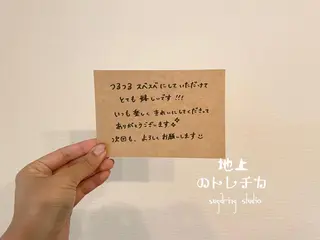 つるつる スベスベ にして いただけて
とても 嬉しーです!!!
いつも 楽しく きれいにしてくださって
ありがとうございます
次回も、よろしくお願いします
地上
のトレチカ